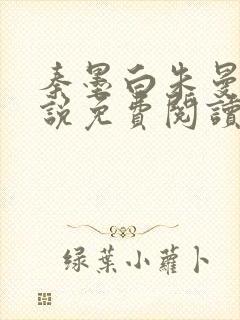 秦墨白朱曼
說免費閱讀
绿葉小蘿卜